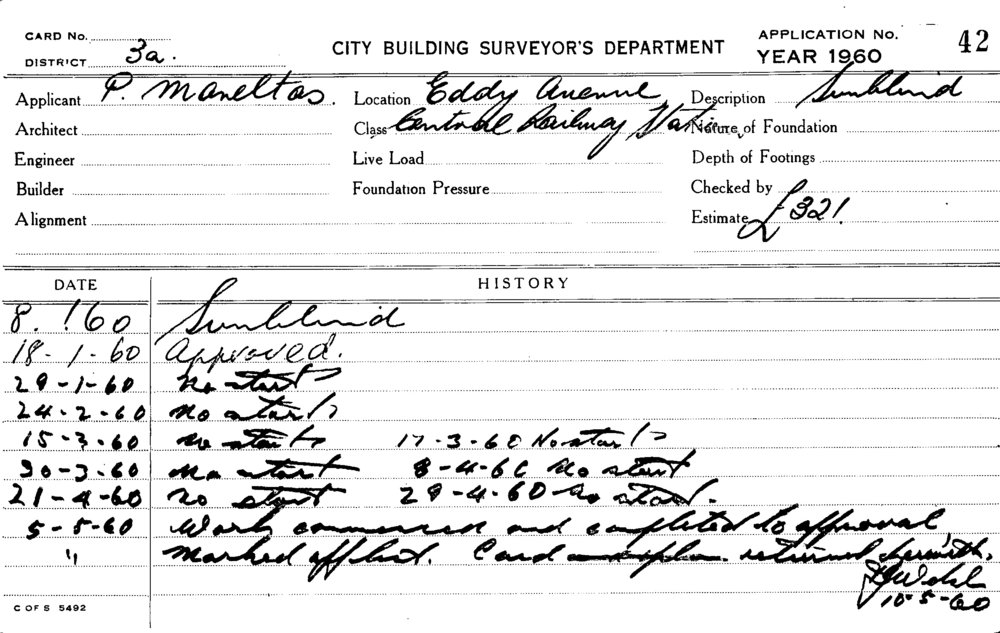 CARD No.
DISTRICT 3a.
CITY BUILDING SURVEYOR'S DEPARTMENT
APPLICATION No. 42
YEAR 1960
Applicant P. Maneltas. Location Eddy Avenue Description Sunblind
Architect Class Central Railway Station. Nature of Foundation
Engineer Live Load Depth of Footings
Builder Foundation Pressure Checked by
Alignment Estimate £321.
DATE HISTORY
8. 1 60 Sunblind
18-1-60 Approved.
29-1-60 No start
24-2-60 No start
15-3-60 No start 17-3-60 No start
30-3-60 No start 8-4-60 No start
21-4-60 No start 29-4-60 No start.
5-5-60 Work commenced and completed to approval
" Marked off list. Card and plan returned herewith.
10-5-60
C OF S 5492